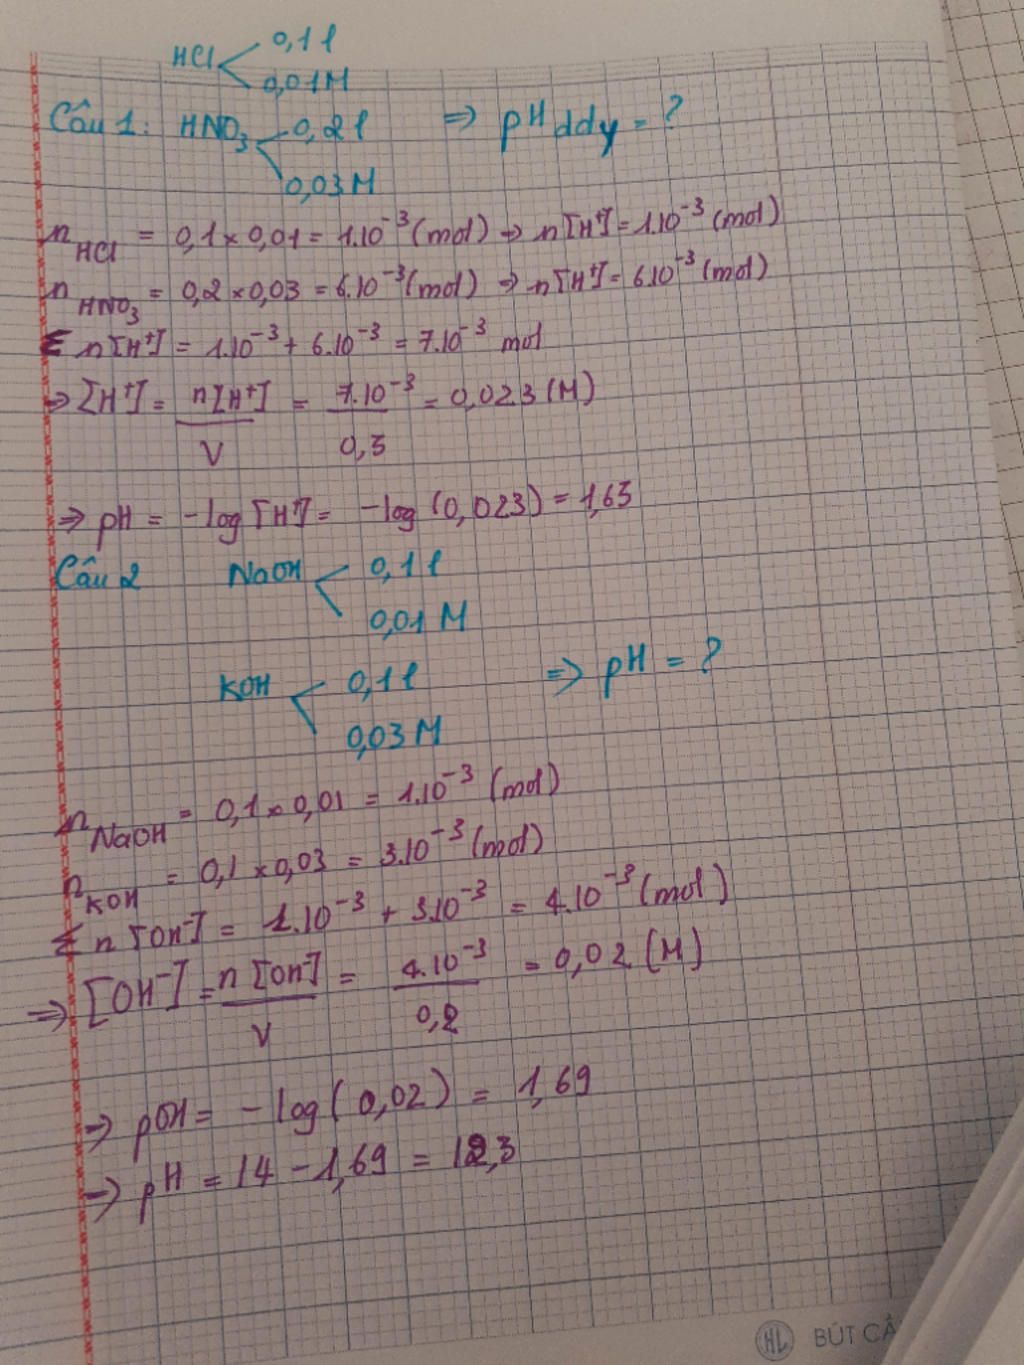 HCl < 0,1 l
0,01M
Câu 1: HNO₃ < 0,2 l ⇒ pH ddy = ?
0,03M
n HCl = 0,1 × 0,01 = 1.10⁻³ (mol) → n[H⁺] = 1.10⁻³ (mol)
n HNO₃ = 0,2 × 0,03 = 6.10⁻³ (mol) → n[H⁺] = 6.10⁻³ (mol)
Σ n[H⁺] = 1.10⁻³ + 6.10⁻³ = 7.10⁻³ mol
⇒ [H⁺] = n[H⁺] / V = 7.10⁻³ / 0,3 = 0,023 (M)
⇒ pH = -log [H⁺] = -log (0,023) = 1,63
Câu 2 NaOH < 0,1 l
0,01 M
KOH < 0,1 l ⇒ pH = ?
0,03 M
n NaOH = 0,1 × 0,01 = 1.10⁻³ (mol)
n KOH = 0,1 × 0,03 = 3.10⁻³ (mol)
Σ n [OH⁻] = 1.10⁻³ + 3.10⁻³ = 4.10⁻³ (mol)
⇒ [OH⁻] = n [OH⁻] / V = 4.10⁻³ / 0,2 = 0,02 (M)
⇒ pOH = -log (0,02) = 1,69
⇒ pH = 14 - 1,69 = 12,3
HL BÚT CẢ